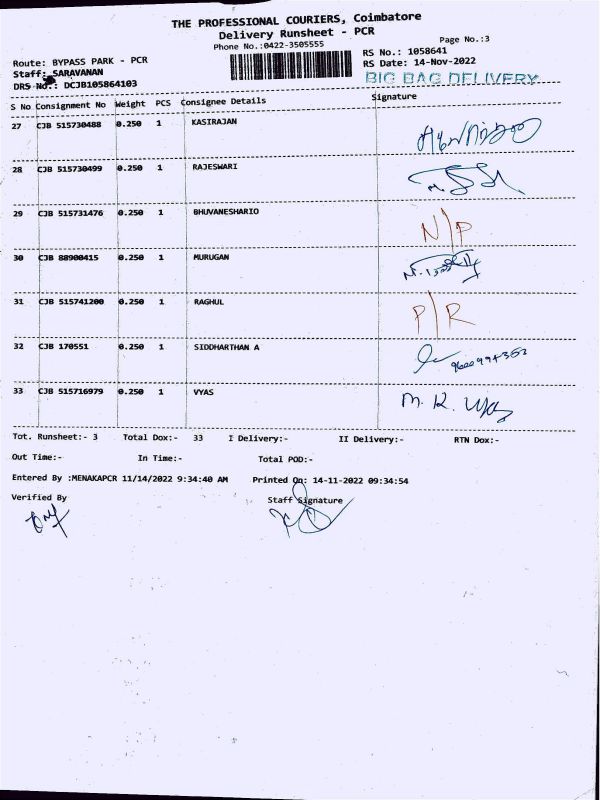 THE PROFESSIONAL COURIERS, Coimbatore
Delivery Runsheet - PCR
Phone No.:0422-3505555
Page No.:3
Route: BYPASS PARK - PCR
RS No.: 1058641
Staff: SARAVANAN
RS Date: 14-Nov-2022
DRS No.: DCJB105864103
BIG BAG DELIVERY
S No Consignment No Weight PCS Consignee Details Signature
27 CJB 515730488 0.250 1 KASIRAJAN
28 CJB 515730499 0.250 1 RAJESWARI
29 CJB 515731476 0.250 1 BHUVANESHARIO N/P
30 CJB 88900415 0.250 1 MURUGAN
31 CJB 515741200 0.250 1 RAGHUL P/R
32 CJB 170551 0.250 1 SIDDHARTHAN A
33 CJB 515716979 0.250 1 VYAS M. K. Vyas
Tot. Runsheet:- 3 Total Dox:- 33 I Delivery:- II Delivery:- RTN Dox:-
Out Time:- In Time:- Total POD:-
Entered By :MENAKAPCR 11/14/2022 9:34:40 AM Printed On: 14-11-2022 09:34:54
Verified By Staff Signature